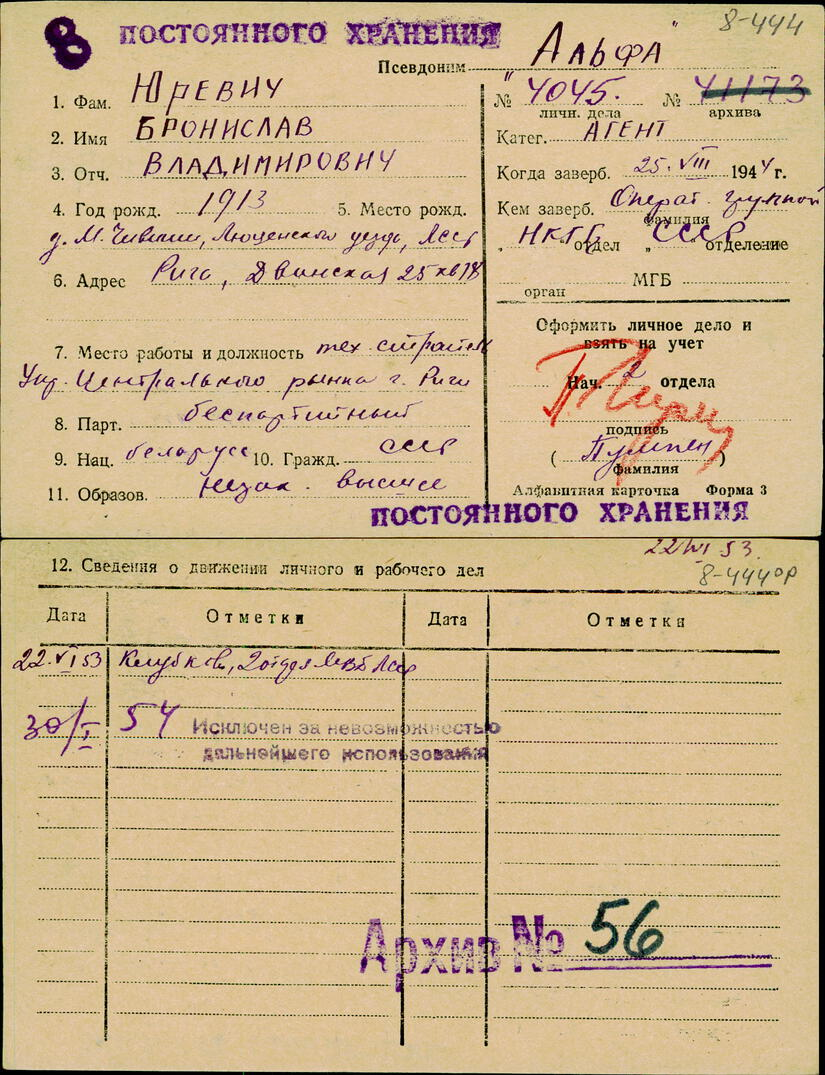 8 ПОСТОЯННОГО ХРАНЕНИЯ
8-444
Псевдоним „Альфа"
1. Фам. ЮРЕВИЧ
2. Имя БРОНИСЛАВ
3. Отч. ВЛАДИМИРОВИЧ
4. Год рожд. 1913 5. Место рожд.
д. М. Люценского уезда, ЛССР
6. Адрес Рига, Двинская 25 кв 18
7. Место работы и должность тех.
Упр. Центрального рынка г. Риги
8. Парт. беспартийный
9. Нац. беларусс 10. Гражд. СССР
11. Образов. незак. высшее
№ 4045. № 41173
личн. дела архива
Катег. АГЕНТ
Когда заверб. 25. VIII 1944 г.
Кем заверб. Операт. группой
фамилия
„ НКГБ отдел „ СССР отделение
МГБ
орган
Оформить личное дело и
взять на учет
Нач. 2 отдела
подпись
( )
фамилия
Алфавитная карточка Форма 3
ПОСТОЯННОГО ХРАНЕНИЯ
22/VI 53.
8-444 ор
12. Сведения о движении личного и рабочего дел
Дата Отметки Дата Отметки
22.VI 53 2 отдел МВД ЛССР
30/I 54 Исключен за невозможностью
дальнейшего использования
Архив № 56